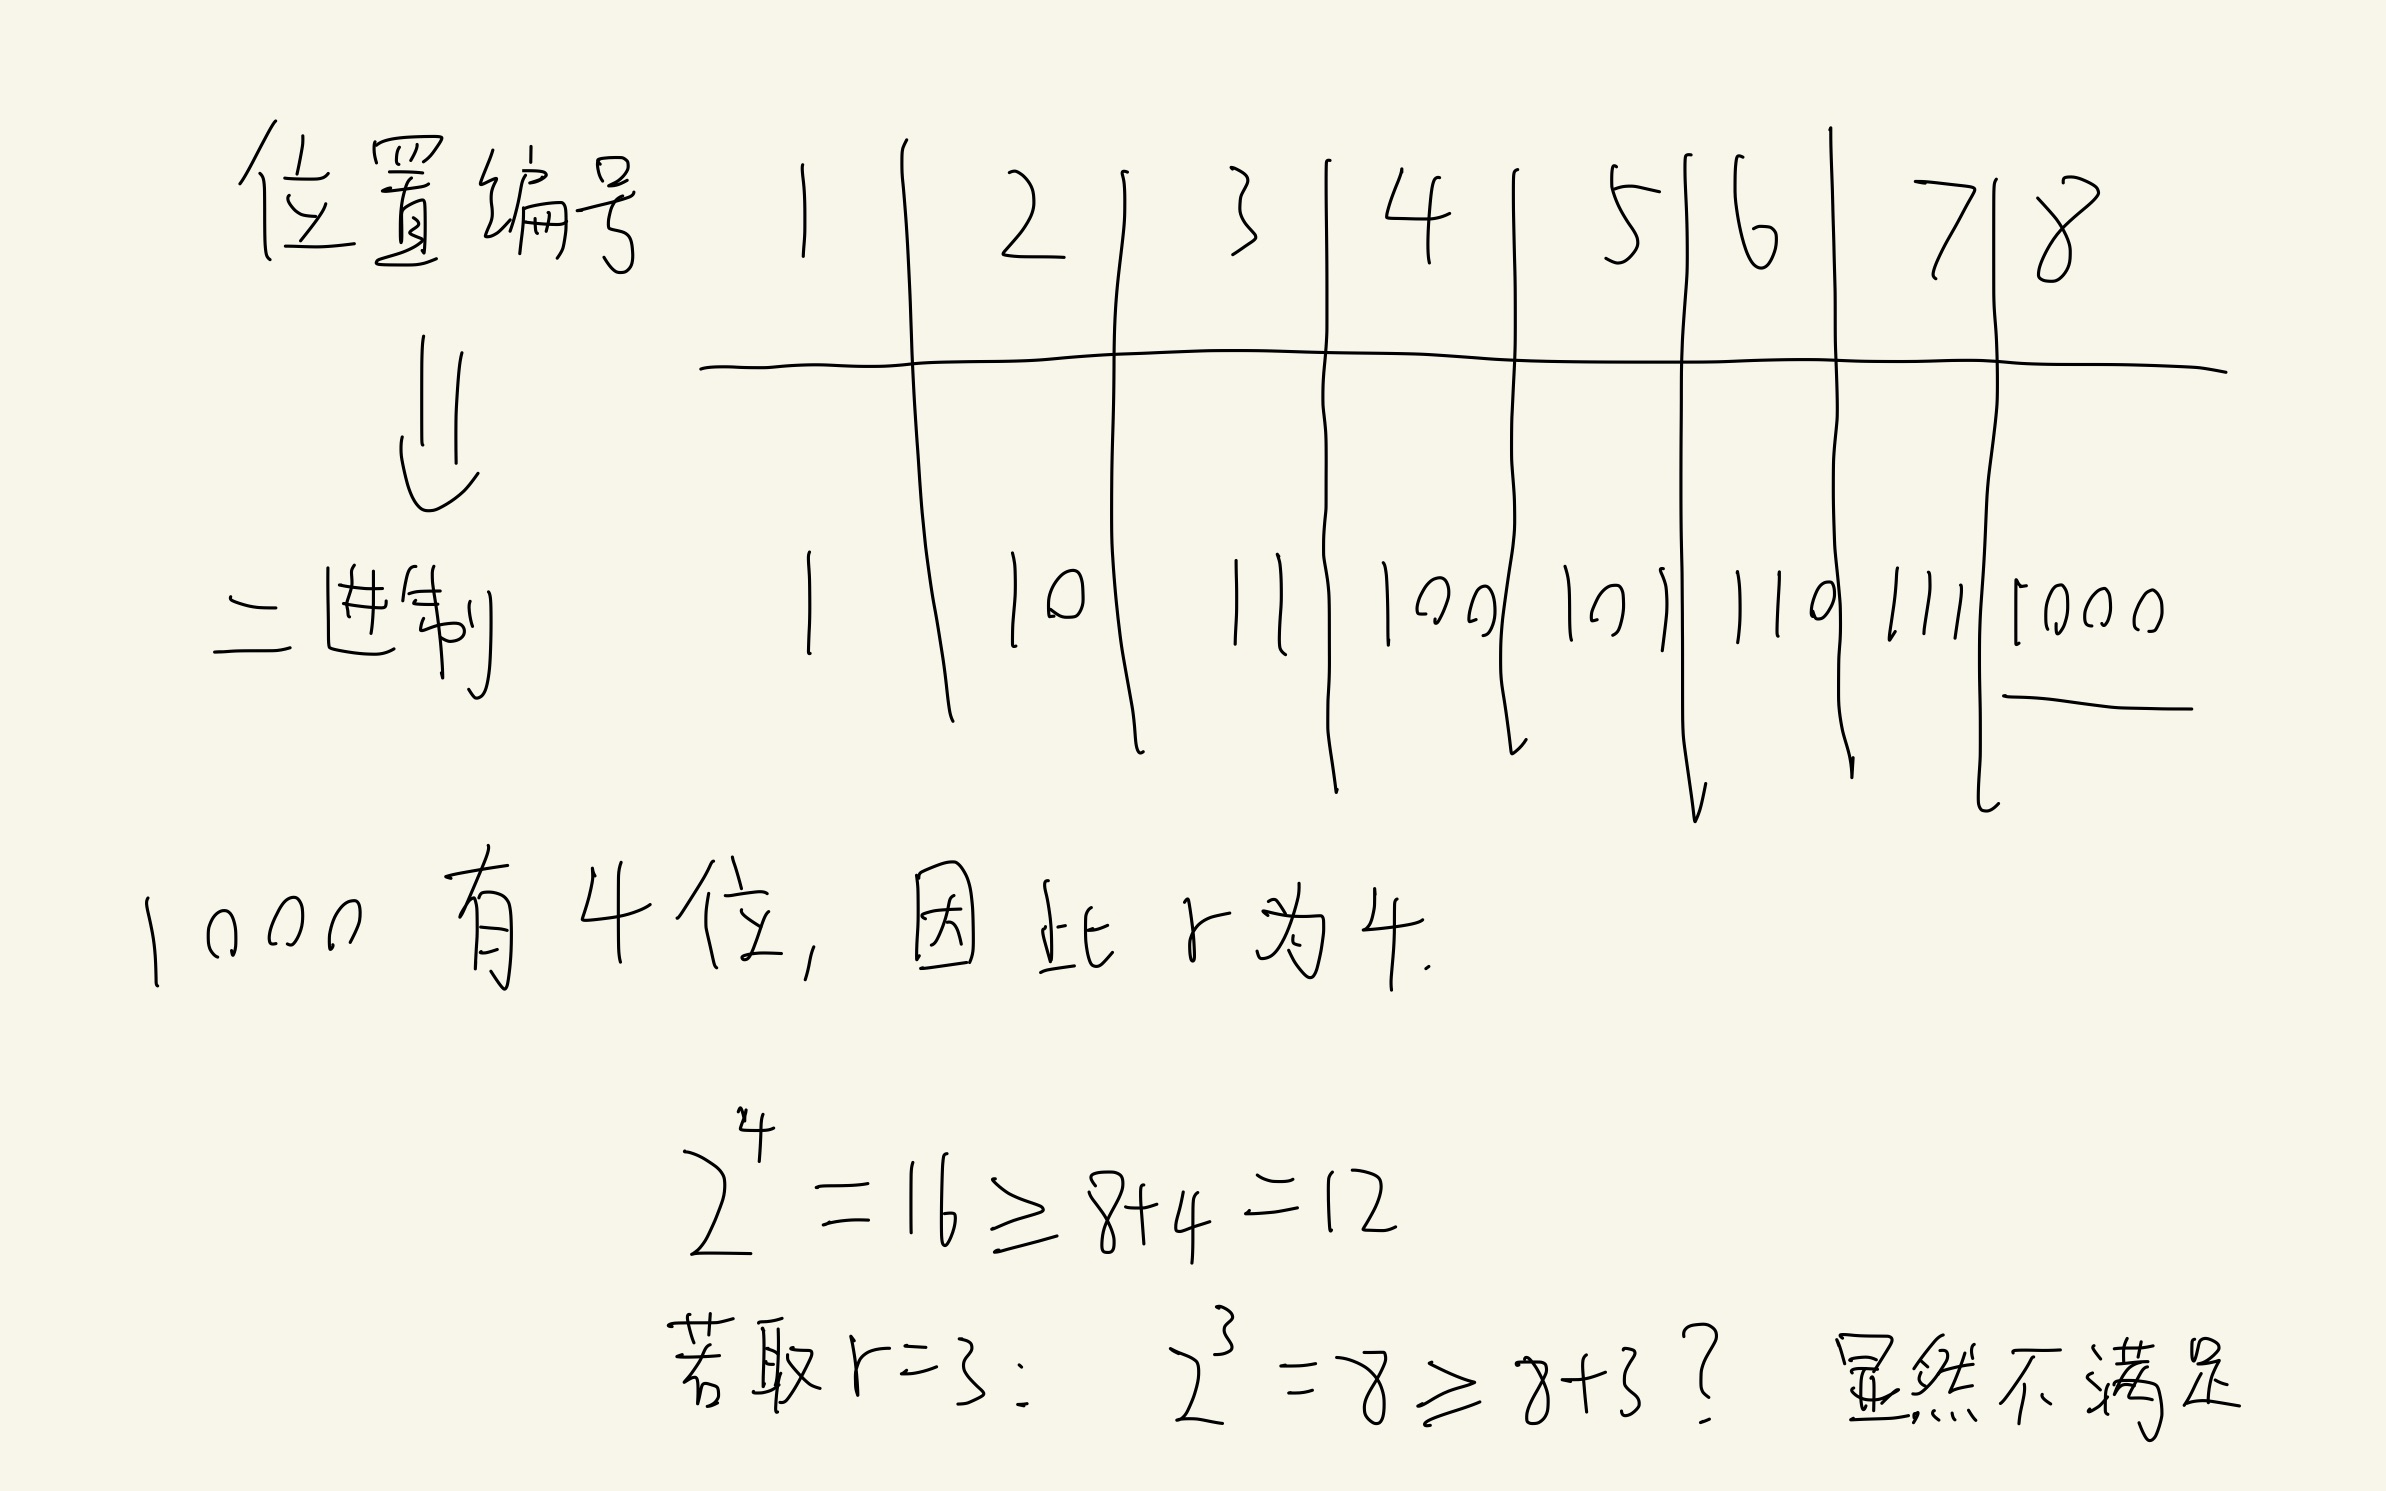 位置编号 1 2 3 4 5 6 7 8
二进制 1 10 11 100 101 110 111 1000
1000 有 4 位, 因此 r 为 4.
2^4 = 16 ≥ 8+4 = 12
若取 r=3: 2^3 = 8 ≥ 8+3? 显然不满足